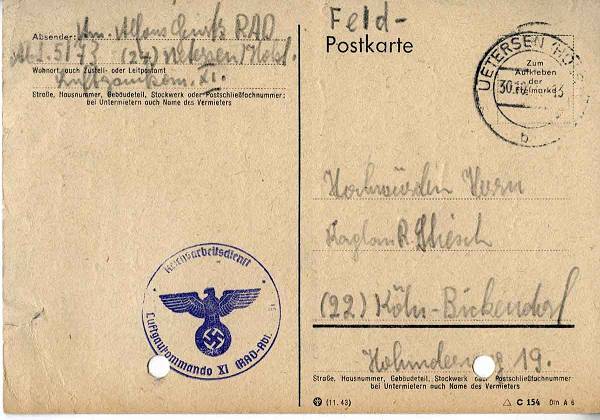 Absender: Am. Alfons RAD
Abt. 5/73 (24) Uetersen/Holst.
Wohnort, auch Zustell- oder Leitpostamt
Luftgaukom. XI.
Straße, Hausnummer, Gebäudeteil, Stockwerk oder Postschließfachnummer;
bei Untermietern auch Name des Vermieters
Feld-
Postkarte
UETERSEN (HOLST
Zum
Aufkleben
der
Freimarke
30.10.
b
Hochwürden Herrn
Kaplan R.
(22) Köln-Bickendorf
19.
Reichsarbeitsdienst
Luftgaukommando XI (RAD-Abt.
Straße, Hausnummer, Gebäudeteil, Stockwerk oder Postschließfachnummer
bei Untermietern auch Name des Vermieters
(11. 43)
C 154 Din A 6